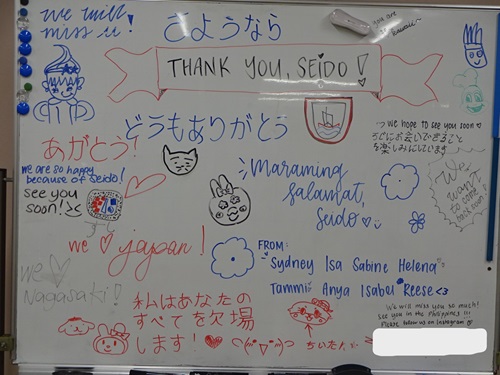 we will
miss u!
さようなら
you are
THANK YOU, SEIDO!
どうもありがとう
we hope to see you soon ♡
を楽しみにしています
あがとう!
we are so happy
because of Seido!
see you
soon! ><
Maraming
Salamat,
Seido ♡
We
want
to come
back soon
we ♡ japan!
FROM:
Sydney Isa Sabine Helena
Tammi Anya Isabel Reese <3
we ♡
Nagasaki!
私はあなたの
すべてを欠場
します!
We will miss you so much!
See you in the Philippines !!!
Please follow us on Instagram